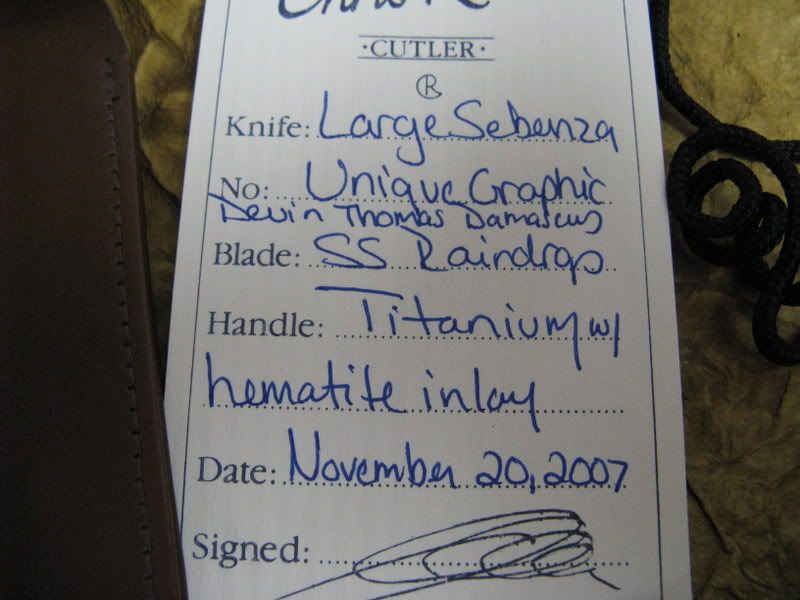 ·CUTLER·
®
Knife: Large Sebenza
No: Unique Graphic
Devin Thomas Damascus
Blade: SS Raindrop
Handle: Titanium w/
hematite inlay
Date: November 20, 2007
Signed: